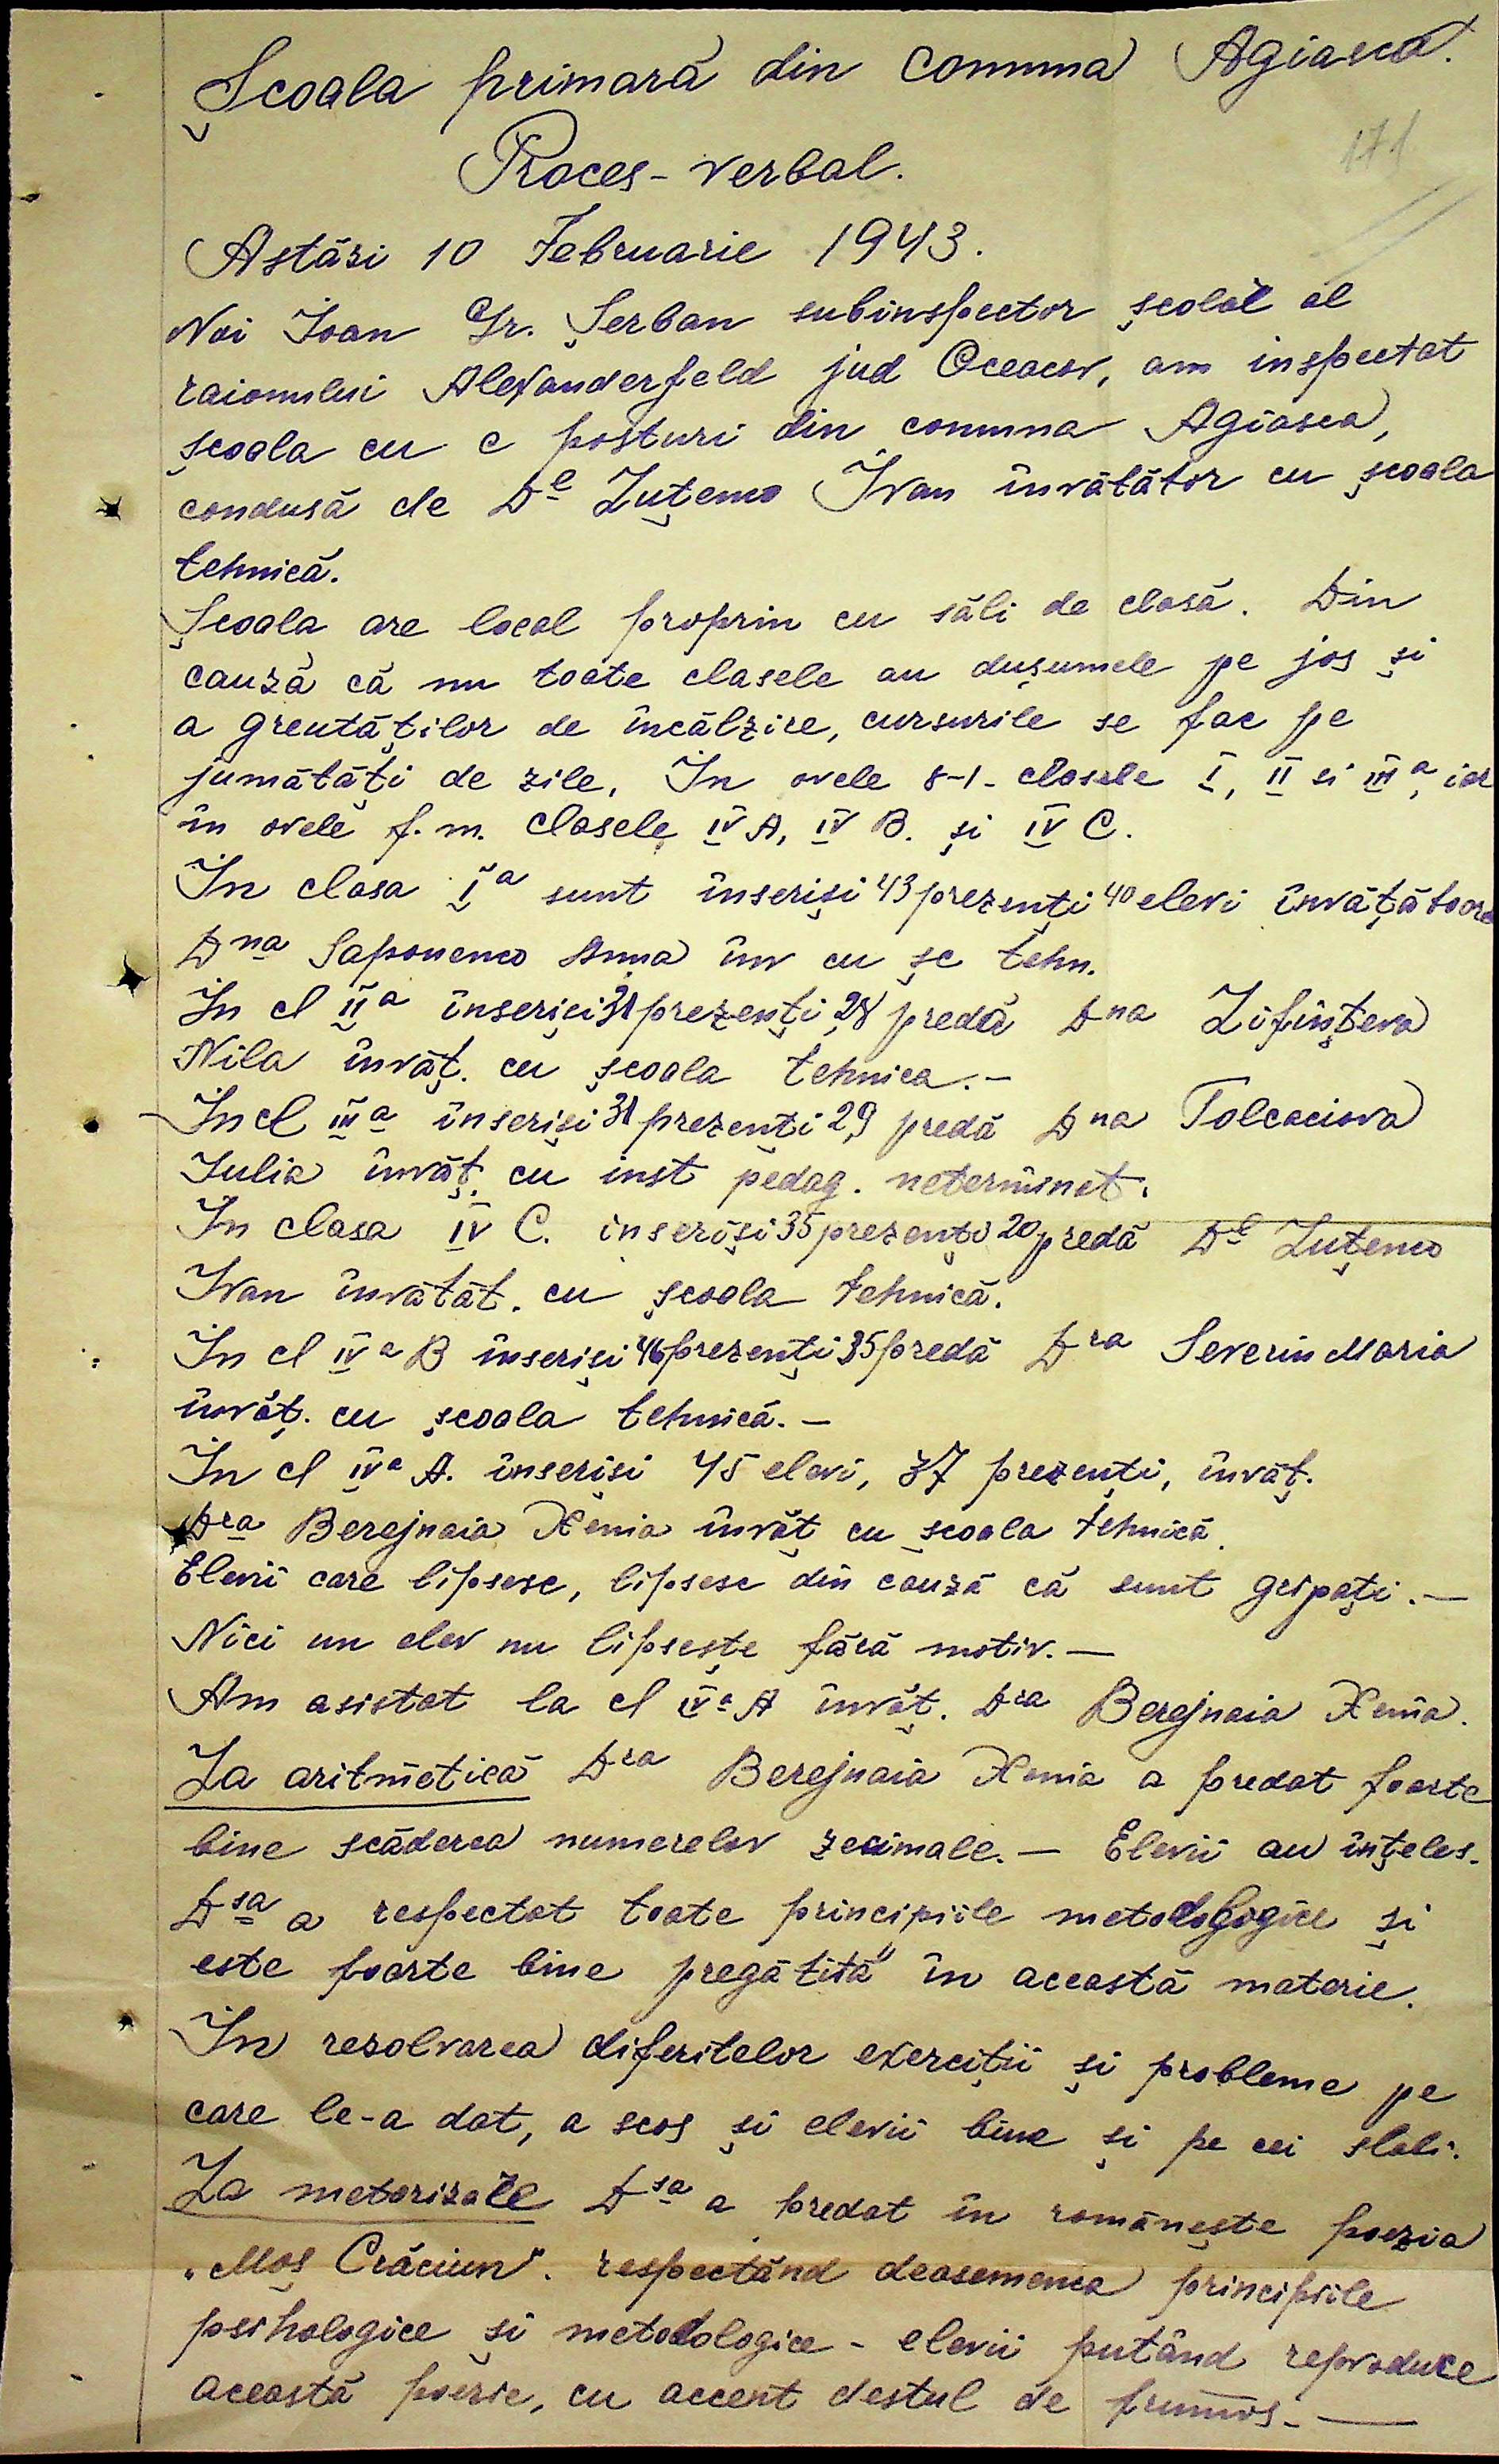 Școala primară din comuna Agiasca.
171
Proces-verbal.
Astăzi 10 Februarie 1943.
Noi Ioan Gr. Șerban subinspector școlar al
raionului Alexanderfeld jud Oceacov, am inspectat
școala cu 6 posturi din comuna Agiasca,
condusă de Dl Luțenco Ivan învătător cu școala
tehnică.
Școala are local propriu cu săli de clasă. Din
cauză că nu toate clasele au dușumele pe jos și
a greutăților de încălzire, cursurile se fac pe
jumătăți de zile. In orele 8-1- clasele I, II si III a, iar
în orele p.m. clasele IV A, IV B. și IV C.
In clasa I a sunt înscriși 43 prezenți 40 elevi învățătoare
Dna Saponenco Anna înv cu șc tehn.
In cl II a înscriși 31 prezenți 28 predă Dna Lifințeva
Nila învăț. cu școala tehnica.-
In cl III a înscriși 31 prezenți 29 predă Dna Tolcaciova
Iulia învăț. cu inst pedag. neterminat.
In clasa IV C. inscriși 35 prezenți 20 predă Dl Luțenco
Ivan învătăt. cu școala tehnică.
In cl IV a B înscriși 46 prezenți 35 predă Dra Severin Maria
învăț. cu școala tehnică.-
In cl IV a A. înscriși 45 elevi, 37 prezenți, învăț.
Dra Berejnaia Xenia învăț cu școala tehnică.
Elevii care lipsesc, lipsesc din cauză că sunt gripați.-
Nici un elev nu lipsește fără motiv.-
Am asistat la cl IV a A învăț. Dra Berejnaia Xenia.
La aritmetică Dra Berejnaia Xenia a predat foarte
bine scăderea numerelor zecimale.- Elevii au înțeles.
Dsa a respectat toate principiile metodologice și
este foarte bine pregătită în această materie.
In rezolvarea diferitelor exerciții și probleme pe
care le-a dat, a scos și elevii buni și pe cei slabi.
La metorizare Dsa a predat în românește poezia
„Moș Crăciun". respectând deasemenea principiile
psihologice și metodologice - elevii putând reproduce
această poezie, cu accent destul de frumos.-